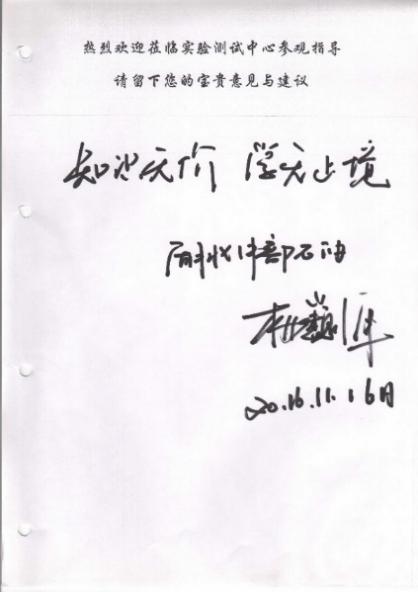 热烈欢迎莅临实验测试中心参观指导
请留下您的宝贵意见与建议
知识无价 学无止境
部石油
2016.11.16日